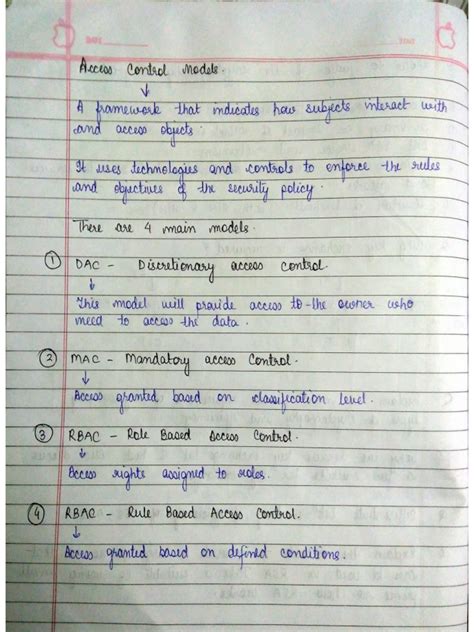 Access Control Models.
↓
A framework that indicates how subjects interact with
and access objects.
It uses technologies and controls to enforce the rules
and objectives of the security policy.
There are 4 main models.
① DAC - Discretionary access control.
↓
This model will provide access to the owner who
need to access the data.
② MAC - Mandatory access Control.
↓
Access granted based on classification level.
③ RBAC - Role Based Access Control.
↓
Access rights assigned to roles.
④ RBAC - Rule Based Access Control.
↓
Access granted based on defined conditions.